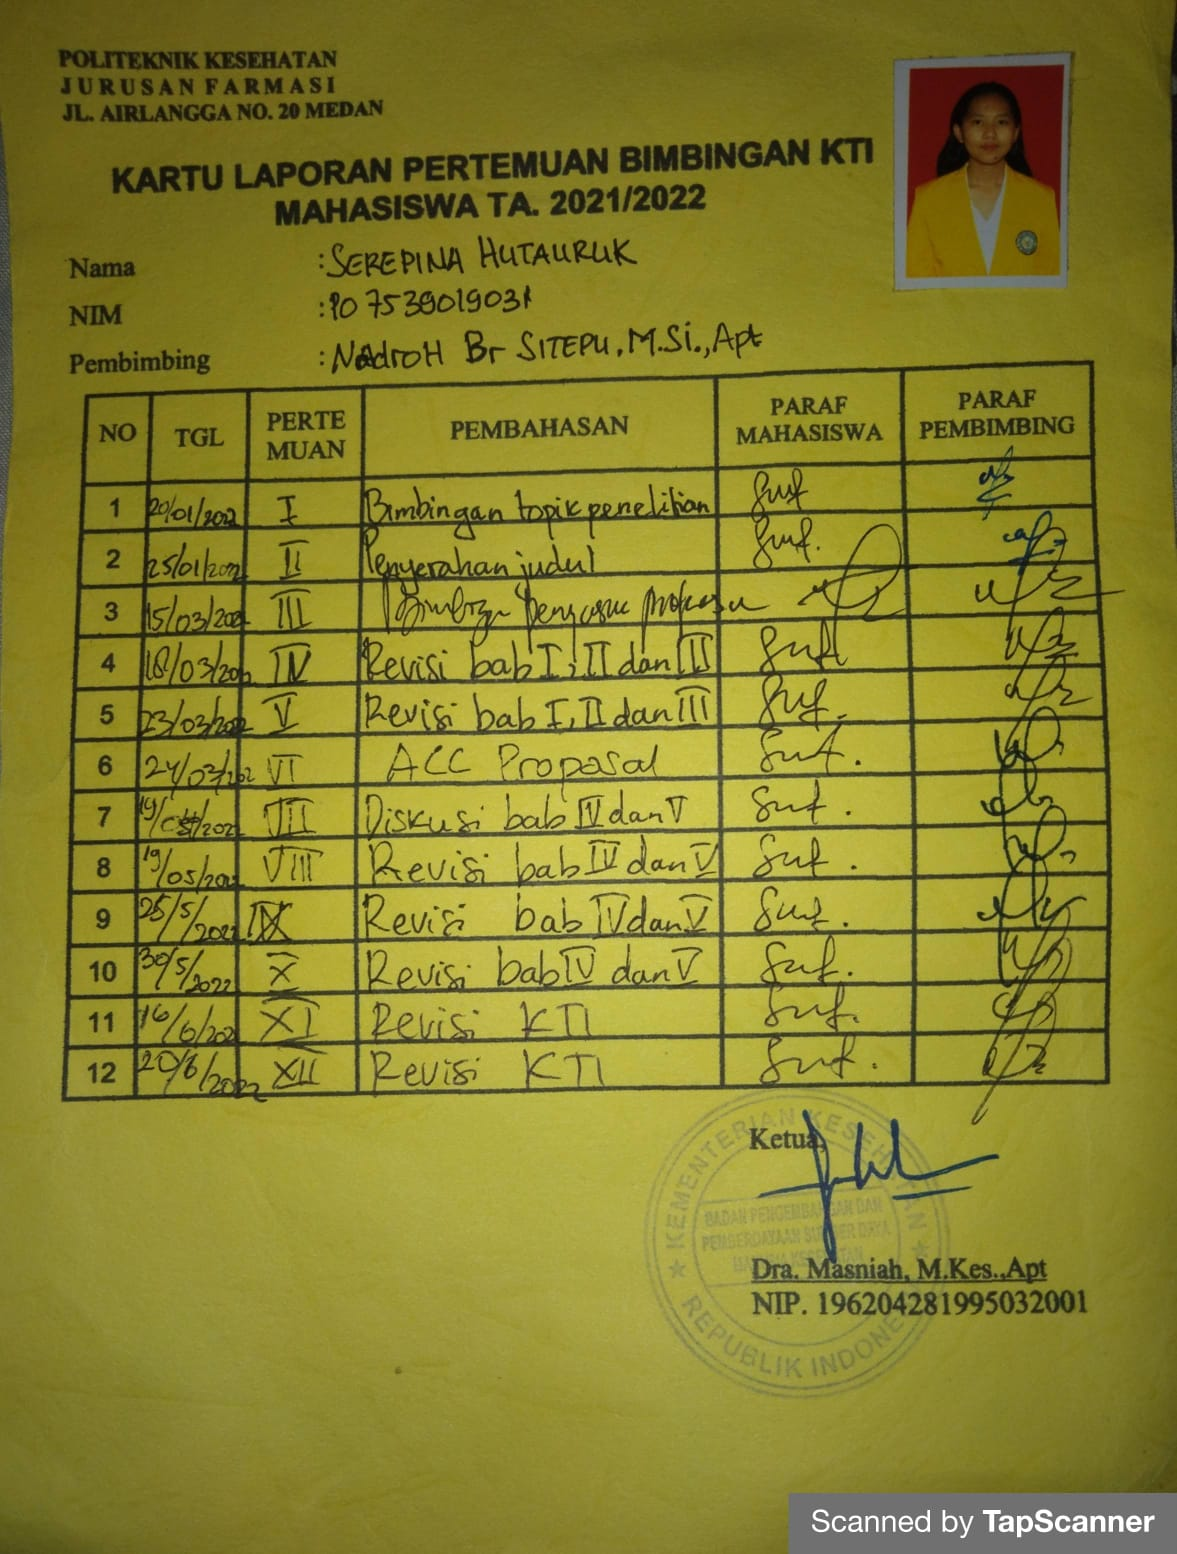 POLITEKNIK KESEHATAN
JURUSAN FARMASI
JL. AIRLANGGA NO. 20 MEDAN
KARTU LAPORAN PERTEMUAN BIMBINGAN KTI
MAHASISWA TA. 2021/2022
Nama : SEREPINA HUTAURUK
NIM : P07539019031
Pembimbing : Nadroh Br SITEPU, M.Si., Apt
NO TGL PERTE MUAN PEMBAHASAN PARAF MAHASISWA PARAF PEMBIMBING
1 20/01/2022 I Bimbingan topik penelitian
2 25/01/2022 II Penyerahan judul
3 15/03/2022 III
4 18/03/2022 IV Revisi bab I, II dan III
5 23/03/2022 V Revisi bab I, II dan III
6 24/03/202 VI ACC Proposal
7 VII Diskusi bab IV dan V
8 19/05/2022 VIII Revisi bab IV dan V
9 25/5/2022 IX Revisi bab IV dan V
10 30/5/2022 X Revisi bab IV dan V
11 16/6/202 XI Revisi KTI
12 20/6/2022 XII Revisi KTI
Ketua,
KEMENTERIAN KESEHATAN
BADAN PENGEMBANGAN DAN
PEMBERDAYAAN SUMBER DAYA
MANUSIA KESEHATAN
REPUBLIK INDONESIA
Dra. Masniah, M.Kes.,Apt
NIP. 196204281995032001
Scanned by TapScanner